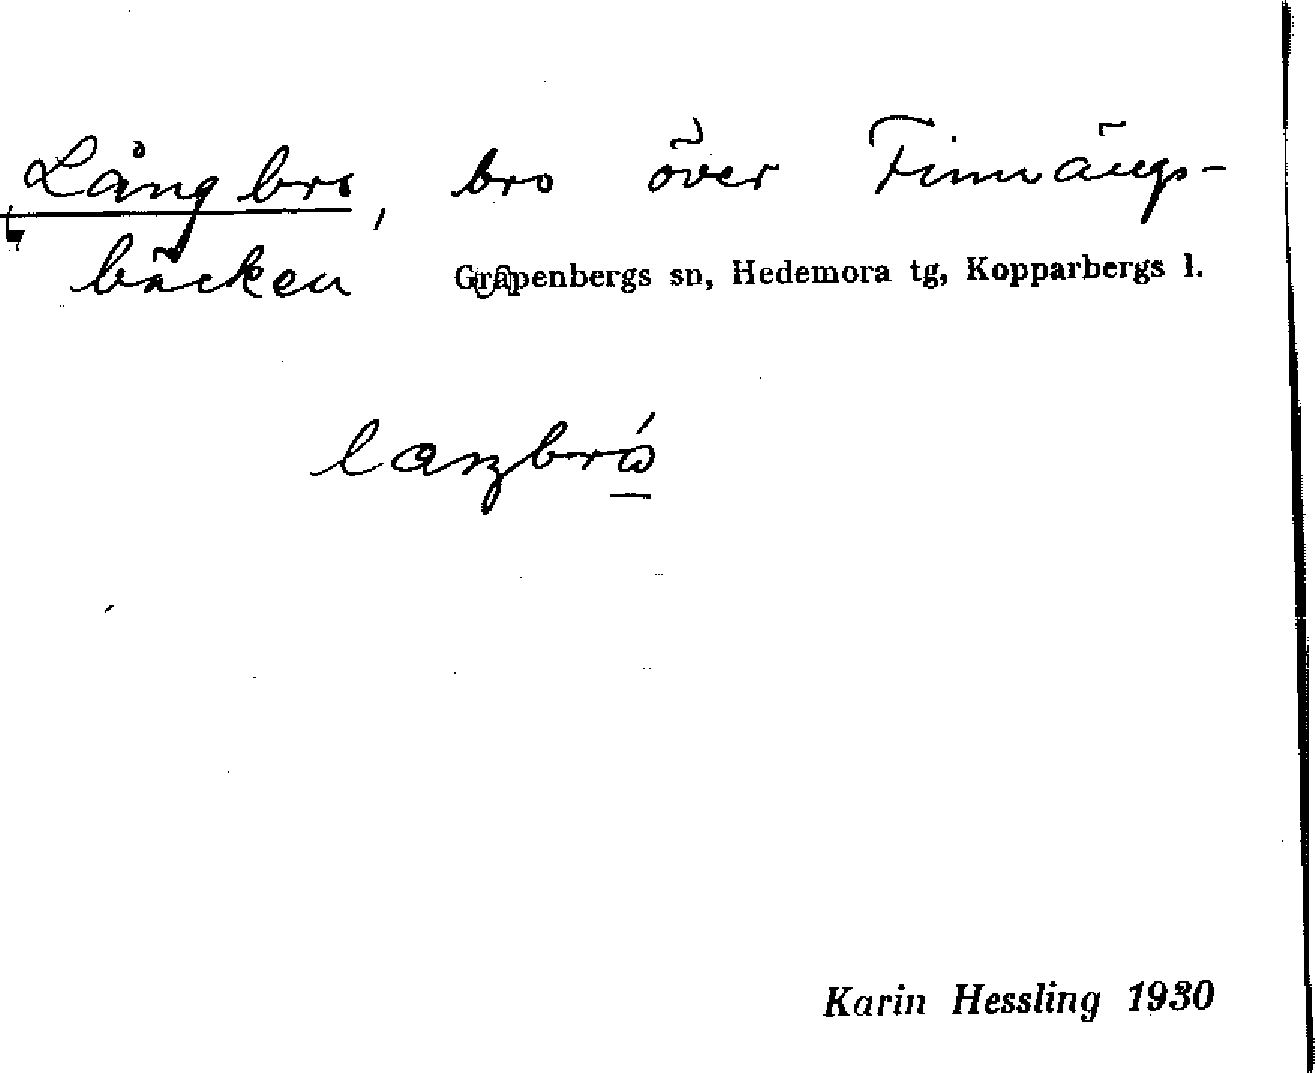 Långbro, bro över Finnängs-
bäcken Grapenbergs sn, Hedemora tg, Kopparbergs l.
Karin Hessling 1930